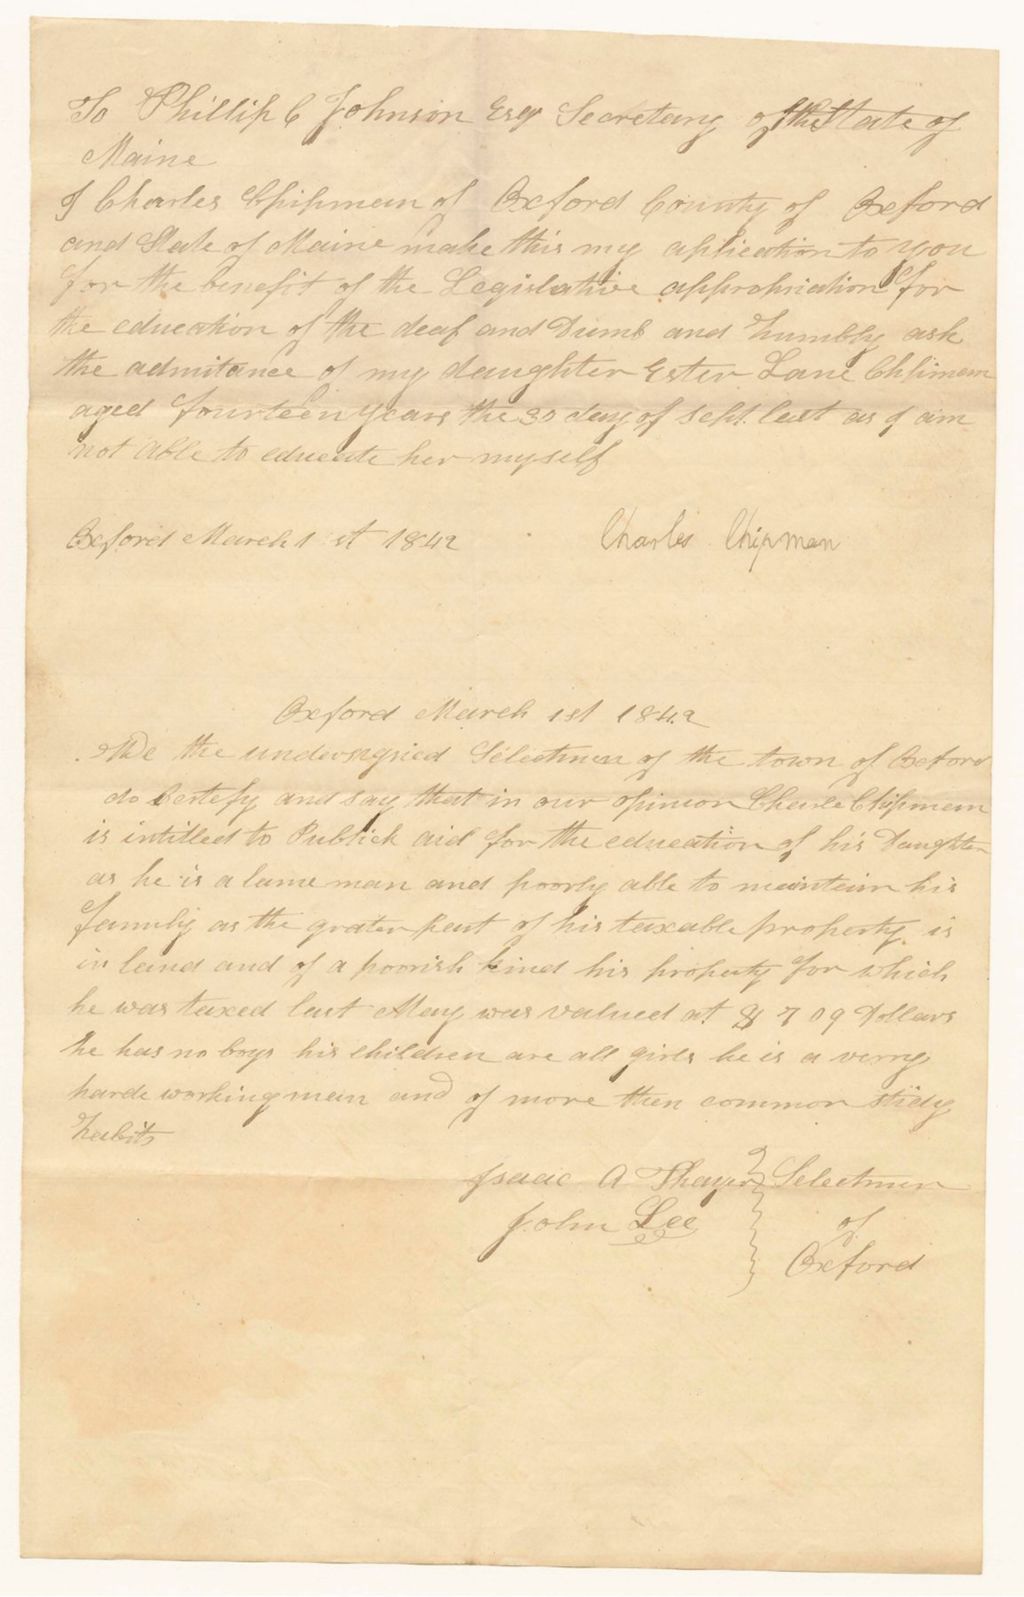 To Phillip C Johnson Esqr Secretary of the State of
Maine
I Charles Chipman of Oxford County of Oxford
and State of Maine make this my aplication to you
for the benefit of the Legislative appropriation for
the education of the deaf and Dumb and humbly ask
the admitance of my daughter Ester Lane Chipman
aged fourteen years the 30 day of Sept. last as I am
not able to educate her myself
Oxford March 1st 1842 Charles Chipman
Oxford March 1st 1842
We the undersigned Selectmen of the town of Oxford
do Certefy and say that in our opinion Charles Chipman
is intitled to Publick aid for the education of his Daughter
as he is a lame man and poorly able to maintain his
family as the grater part of his taxable property is
in land and of a poorish kind his property for which
he was taxed last May was valued at $ 709 Dollars
he has no boys his children are all girls he is a verry
harde working man and of more then common stidy
habits
Isaac A Thayer Selectmen
John Lee of
Oxford